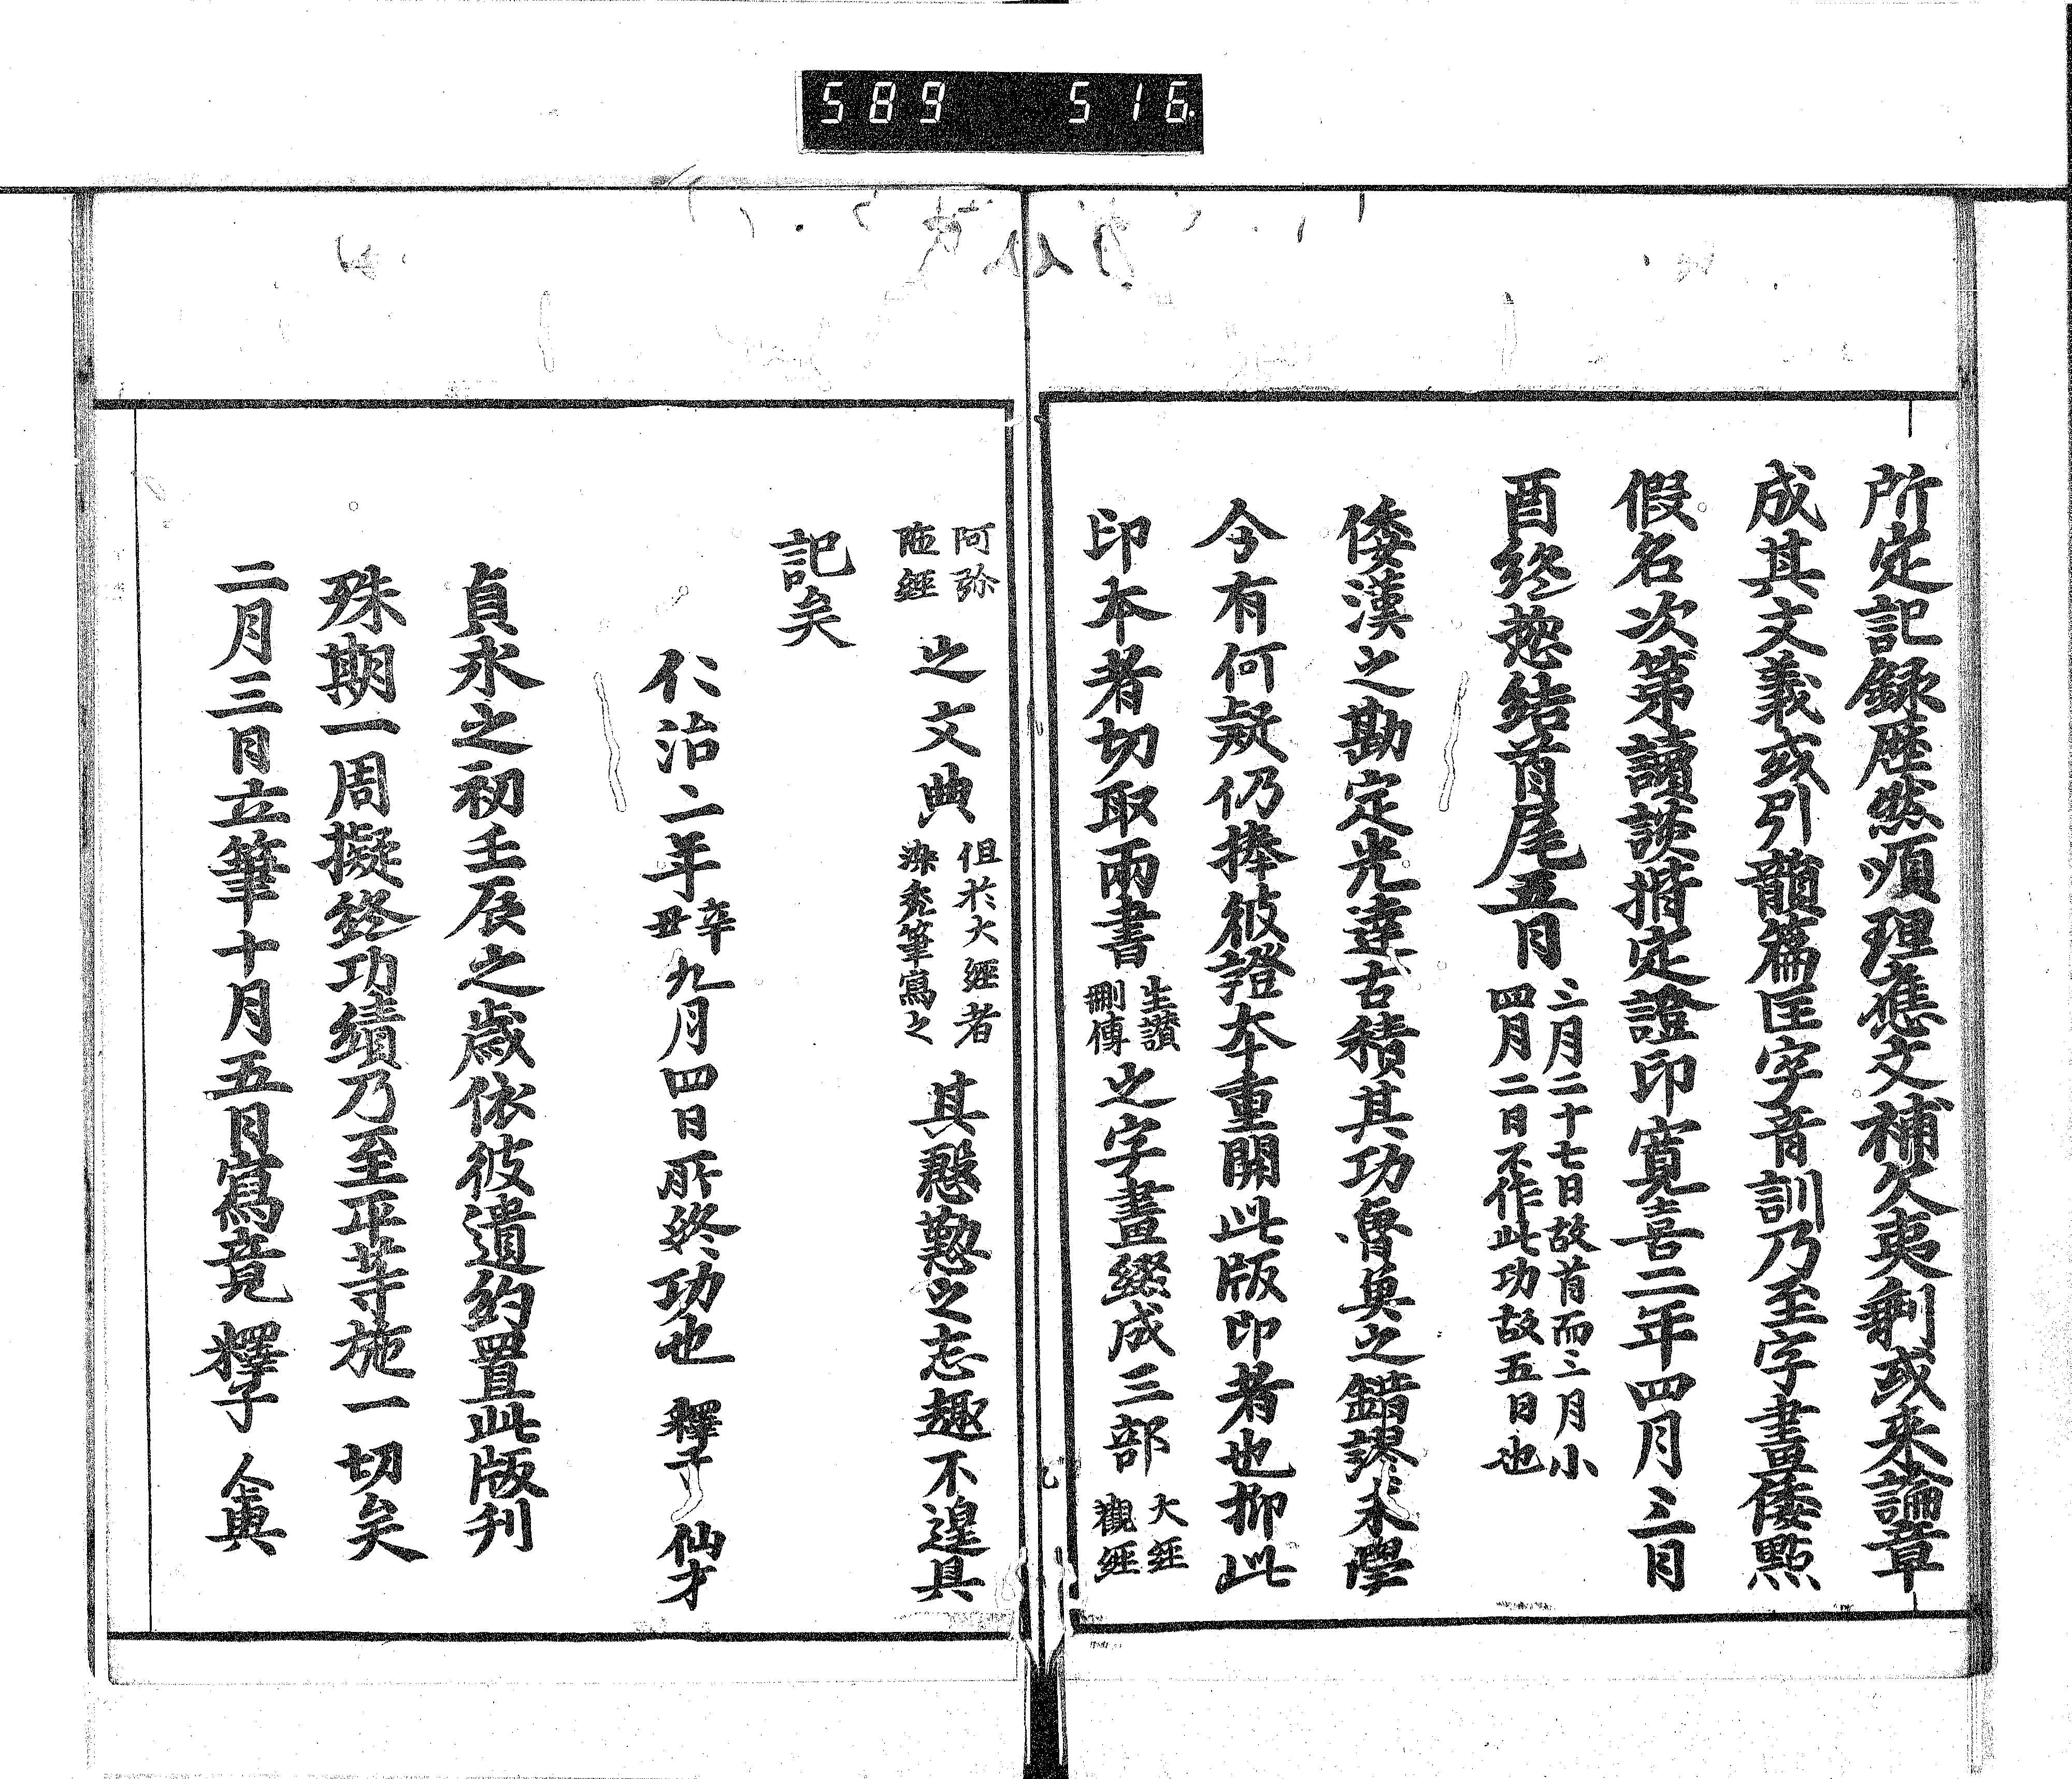 589 516
所定記録歴然順理應文補欠夷剰或來論章
成其文義或引韻篇匡字音訓乃至字畫倭點
假名次第讀談揩定證印寛喜二年四月三日
酉終惣結首尾五月三月二十七日故首而三月小四月二日不作此功故五日也
倭漢之勘定光達古積其功魯魚之錯謬末學
今有何疑仍捧彼證本重開此版印者也抑此
印本者切取兩書生讃刪傳之字畫綴成三部大經觀經
阿弥陀經之文典但於大經者染禿筆寫之其慇懃之志趣不遑具
記矣
仁治二年辛丑九月四日所終功也釋子仙才
貞永之初壬辰之歳依彼遺約置此版刋
殊期一周擬終功績乃至平等施一切矣
二月三日立筆十月五日寫竟釋子